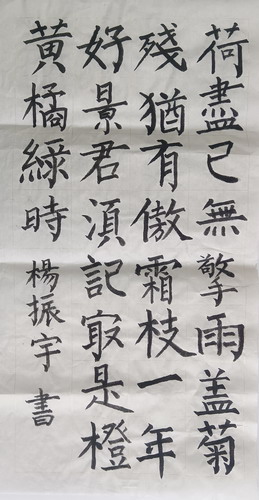 荷盡已無擎雨盖菊
殘猶有傲霜枝一年
好景君須記㝡是橙
黃橘綠時 楊振宇書